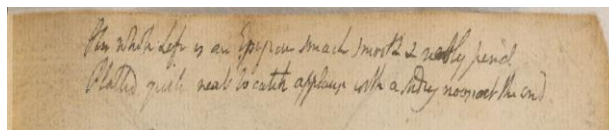 Her whole Life is an Epigram smack smooth & nobly pend
Platted quite neat to catch applause with a sliding noose at the end